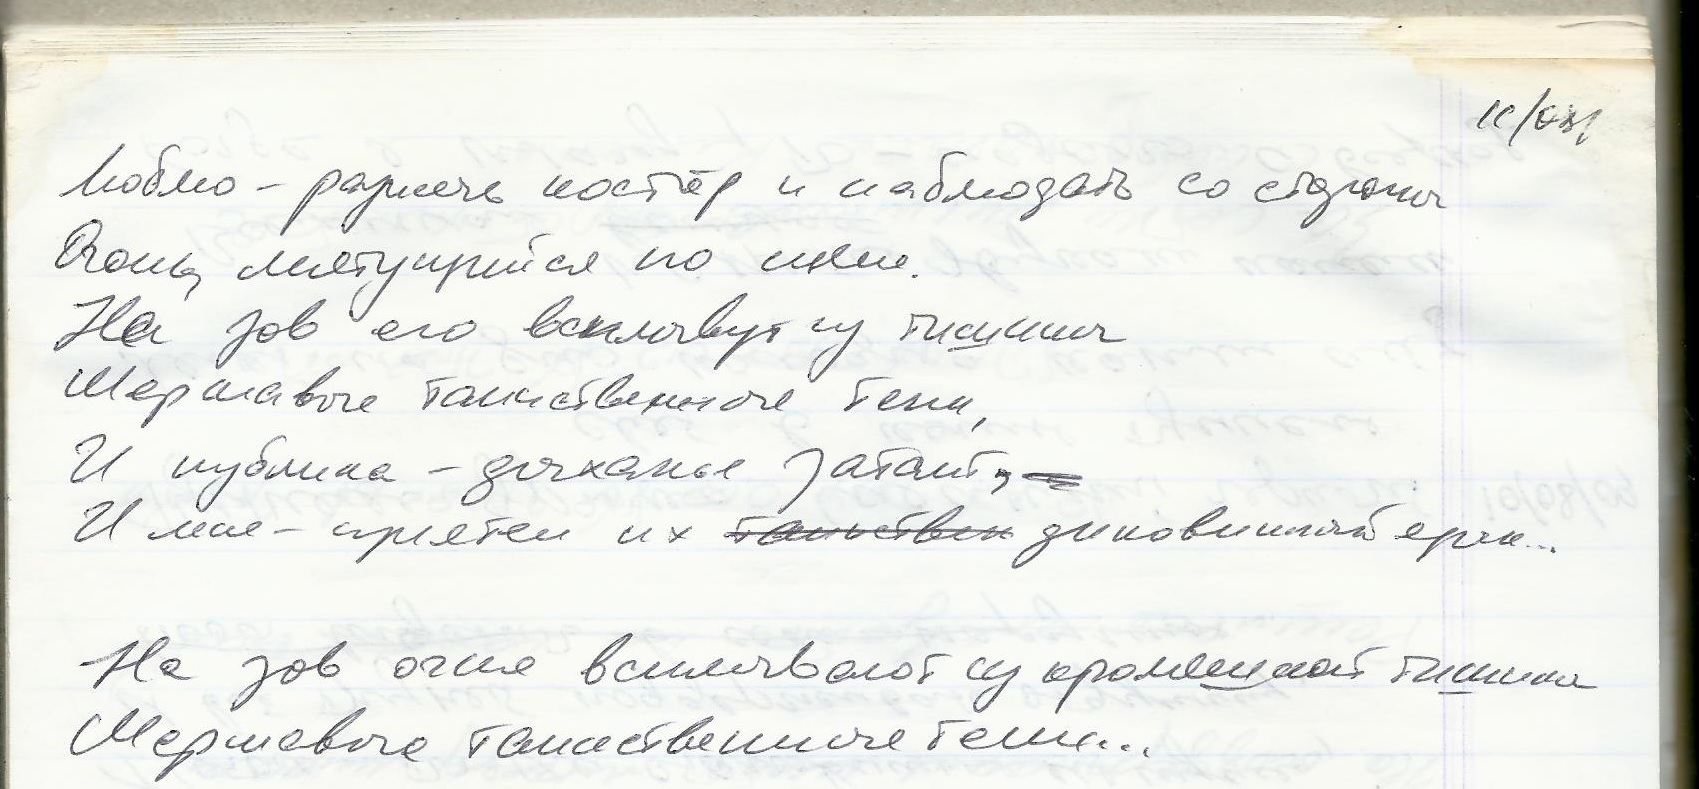 11/08/
Люблю – разжечь костёр и наблюдать со стороны
Огонь, мятущийся по сцене.
На зов его всплывут из тишины
Шершавые таинственные тени,
И публика – дыханье затаит,
И мне – приятен их таинствен диковинный
На зов огня всплывают из кромешной тишины
Шершавые таинственные тени...